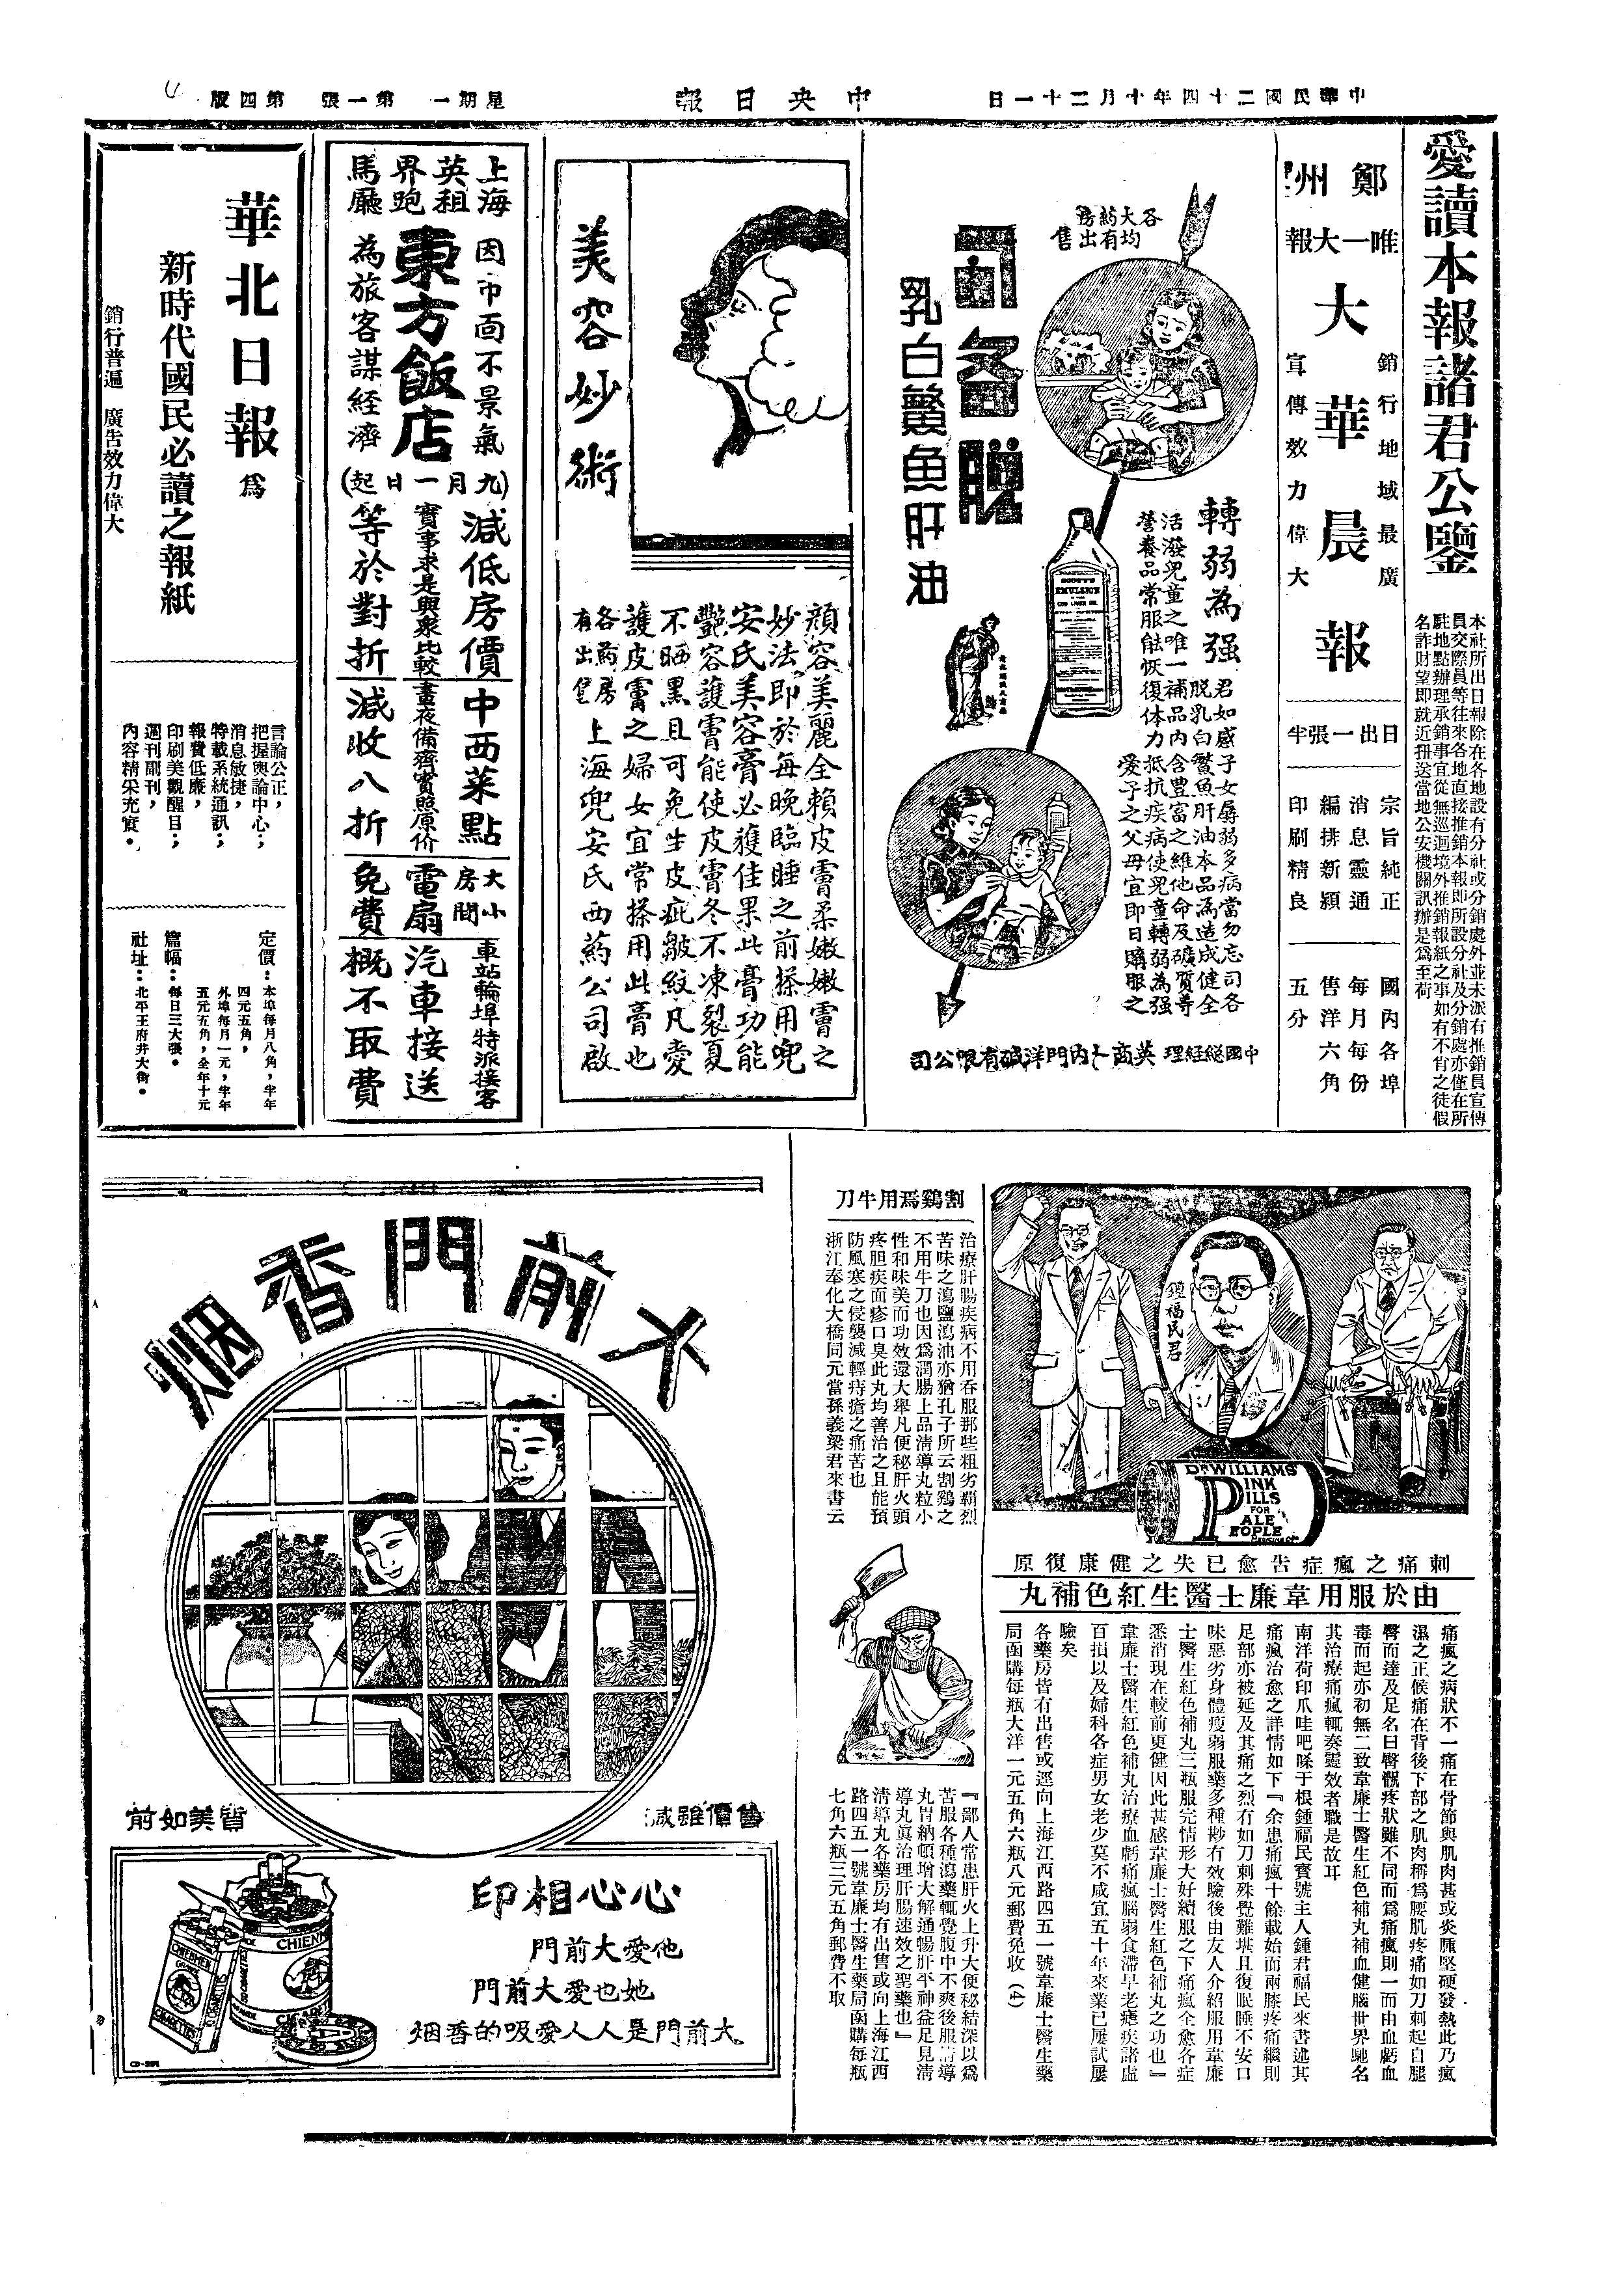 中華民國二十四年十月二十一日
中央日報
星期一 第一張 第四版
愛讀本報諸君公鑒
本社所出日報除在各地設有分社或分銷處外並未派有推銷員宣傳
員交際員等往來各地直接推銷本報即所設分社及分銷處亦僅在所
駐地點辦理承銷事宜從無巡迴境外推銷報紙之事如有不肖之徒假
名詐財望即就近扭送當地公安機關訊辦是為至荷
鄭州
唯一大報
大華晨報
銷行地域最廣
宣傳效力偉大
日出一張半
宗旨純正
消息靈通
編排新穎
印刷精良
國內各埠
每月每份
售洋六角
五分
各大藥房
均有出售
司各脫
乳白鰵魚肝油
轉弱為强
君如感子女孱弱多病當勿忘司各
脫乳白鰵魚肝油本品為造成健全
活潑兒童之唯一補品內含豐富之維他命及礦質等
營養品常服能恢復体力抵抗疾病使兒童轉弱為强
愛子之父母宜即日購服之
SCOTT'S
EMULSION
COD LIVER OIL
中國總經理 英商卜內門洋碱有限公司
美容妙術
顏容美麗全賴皮膚柔嫩嫩膚之
妙法即於每晚臨睡之前搽用兜
安氏美容膏必獲佳果此膏功能
艷容護膚能使皮膚冬不凍裂夏
不晒黑且可免生皮疵皺紋凡愛
護皮膚之婦女宜常搽用此膏也
各藥房
有出售
上海兜安氏西藥公司啟
上海
英租
界跑
馬廳
東方飯店
因市面不景氣
為旅客謀經濟
(九月一日起)
減低房價
實事求是與衆比較
等於對折
中西菜點
晝夜備齊實照原价
減收八折
大小
房間
電扇
免費
車站輪埠特派接客
汽車接送
概不取費
華北日報為
新時代國民必讀之報紙
銷行普遍 廣告效力偉大
言論公正，
把握輿論中心；
消息敏捷，
特載系統通訊；
報費低廉，
印刷美觀醒目；
週刊副刊，
內容精采充實。
定價：本埠每月八角，半年
四元五角，
外埠每月一元，半年
五元五角，全年十元
篇幅：每日三大張。
社址：北平王府井大街。
鍾福民君
DR WILLIAMS'
PINK
PILLS
FOR
PALE
PEOPLE
刺痛之瘋症告愈已失之健康復原
由於服用韋廉士醫生紅色補丸
痛瘋之病狀不一痛在骨節與肌肉甚或炎腫堅硬發熱此乃瘋
濕之正候痛在背後下部之肌肉稱為腰肌疼痛如刀刺起自腿
臀而達及足名曰臀髖疼狀雖不同而為痛瘋則一而由血虧血
毒而起亦初無二致韋廉士醫生紅色補丸補血健腦世界馳名
其治療痛瘋輒奏靈效者職是故耳
南洋荷印爪哇吧𠻸于根鍾福民寶號主人鍾君福民來書述其
痛瘋治愈之詳情如下『余患痛瘋十餘載始而兩膝疼痛繼則
足部亦被延及其痛之烈有如刀刺殊覺難堪且復眠睡不安口
味惡劣身體瘦弱服藥多種尠有效驗後由友人介紹服用韋廉
士醫生紅色補丸三瓶服完情形大好續服之下痛瘋全愈各症
悉消現在較前更健因此甚感韋廉士醫生紅色補丸之功也』
韋廉士醫生紅色補丸治療血虧痛瘋腦弱食滯早老瘧疾諸虛
百損以及婦科各症男女老少莫不咸宜五十年來業已屢試屢
驗矣
各藥房皆有出售或逕向上海江西路四五一號韋廉士醫生藥
局函購每瓶大洋一元五角六瓶八元郵費免收（4）
割鷄焉用牛刀
治療肝腸疾病不用吞服那些粗劣霸烈
苦味之瀉鹽瀉油亦猶孔子所云割鷄之
不用牛刀也因為潤腸上品清導丸粒小
性和味美而功效還大舉凡便秘肝火頭
疼胆疾面疹口臭此丸均善治之且能預
防風寒之侵襲減輕痔瘡之痛苦也
浙江奉化大橋同元當孫義梁君來書云
『鄙人常患肝火上升大便秘結深以為
苦服各種瀉藥輒覺腹中不爽後服清導
丸胃納頓增大解通暢肝平神益足見清
導丸眞治理肝腸速效之聖藥也』
清導丸各藥房均有出售或向上海江西
路四五一號韋廉士醫生藥局函購每瓶
七角六瓶三元五角郵費不取
大前門香烟
售價雖減
皆美如前
心心相印
他愛大前門
她也愛大前門
大前門是人人愛吸的香烟
CHIENMEN
CHIENM
CIGARETTES
CIGARET